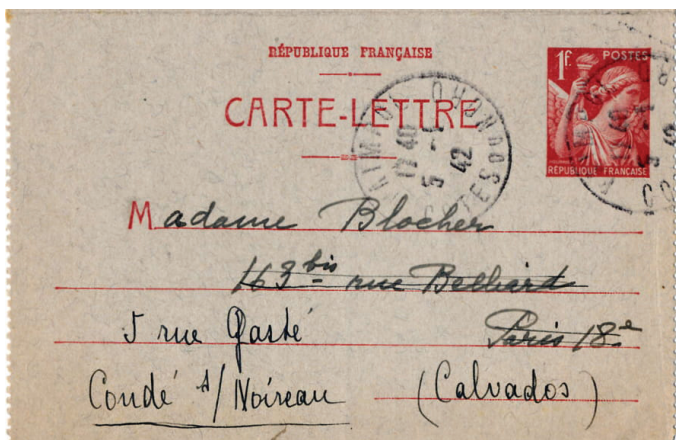 RÉPUBLIQUE FRANÇAISE
CARTE-LETTRE
1F. POSTES
RÉPUBLIQUE FRANÇAISE
17 40
5 - 1
42
Madame Blocher
163 bis rue Belliard
Paris 18e
5 rue Gasté
Condé s/ Noireau (Calvados)